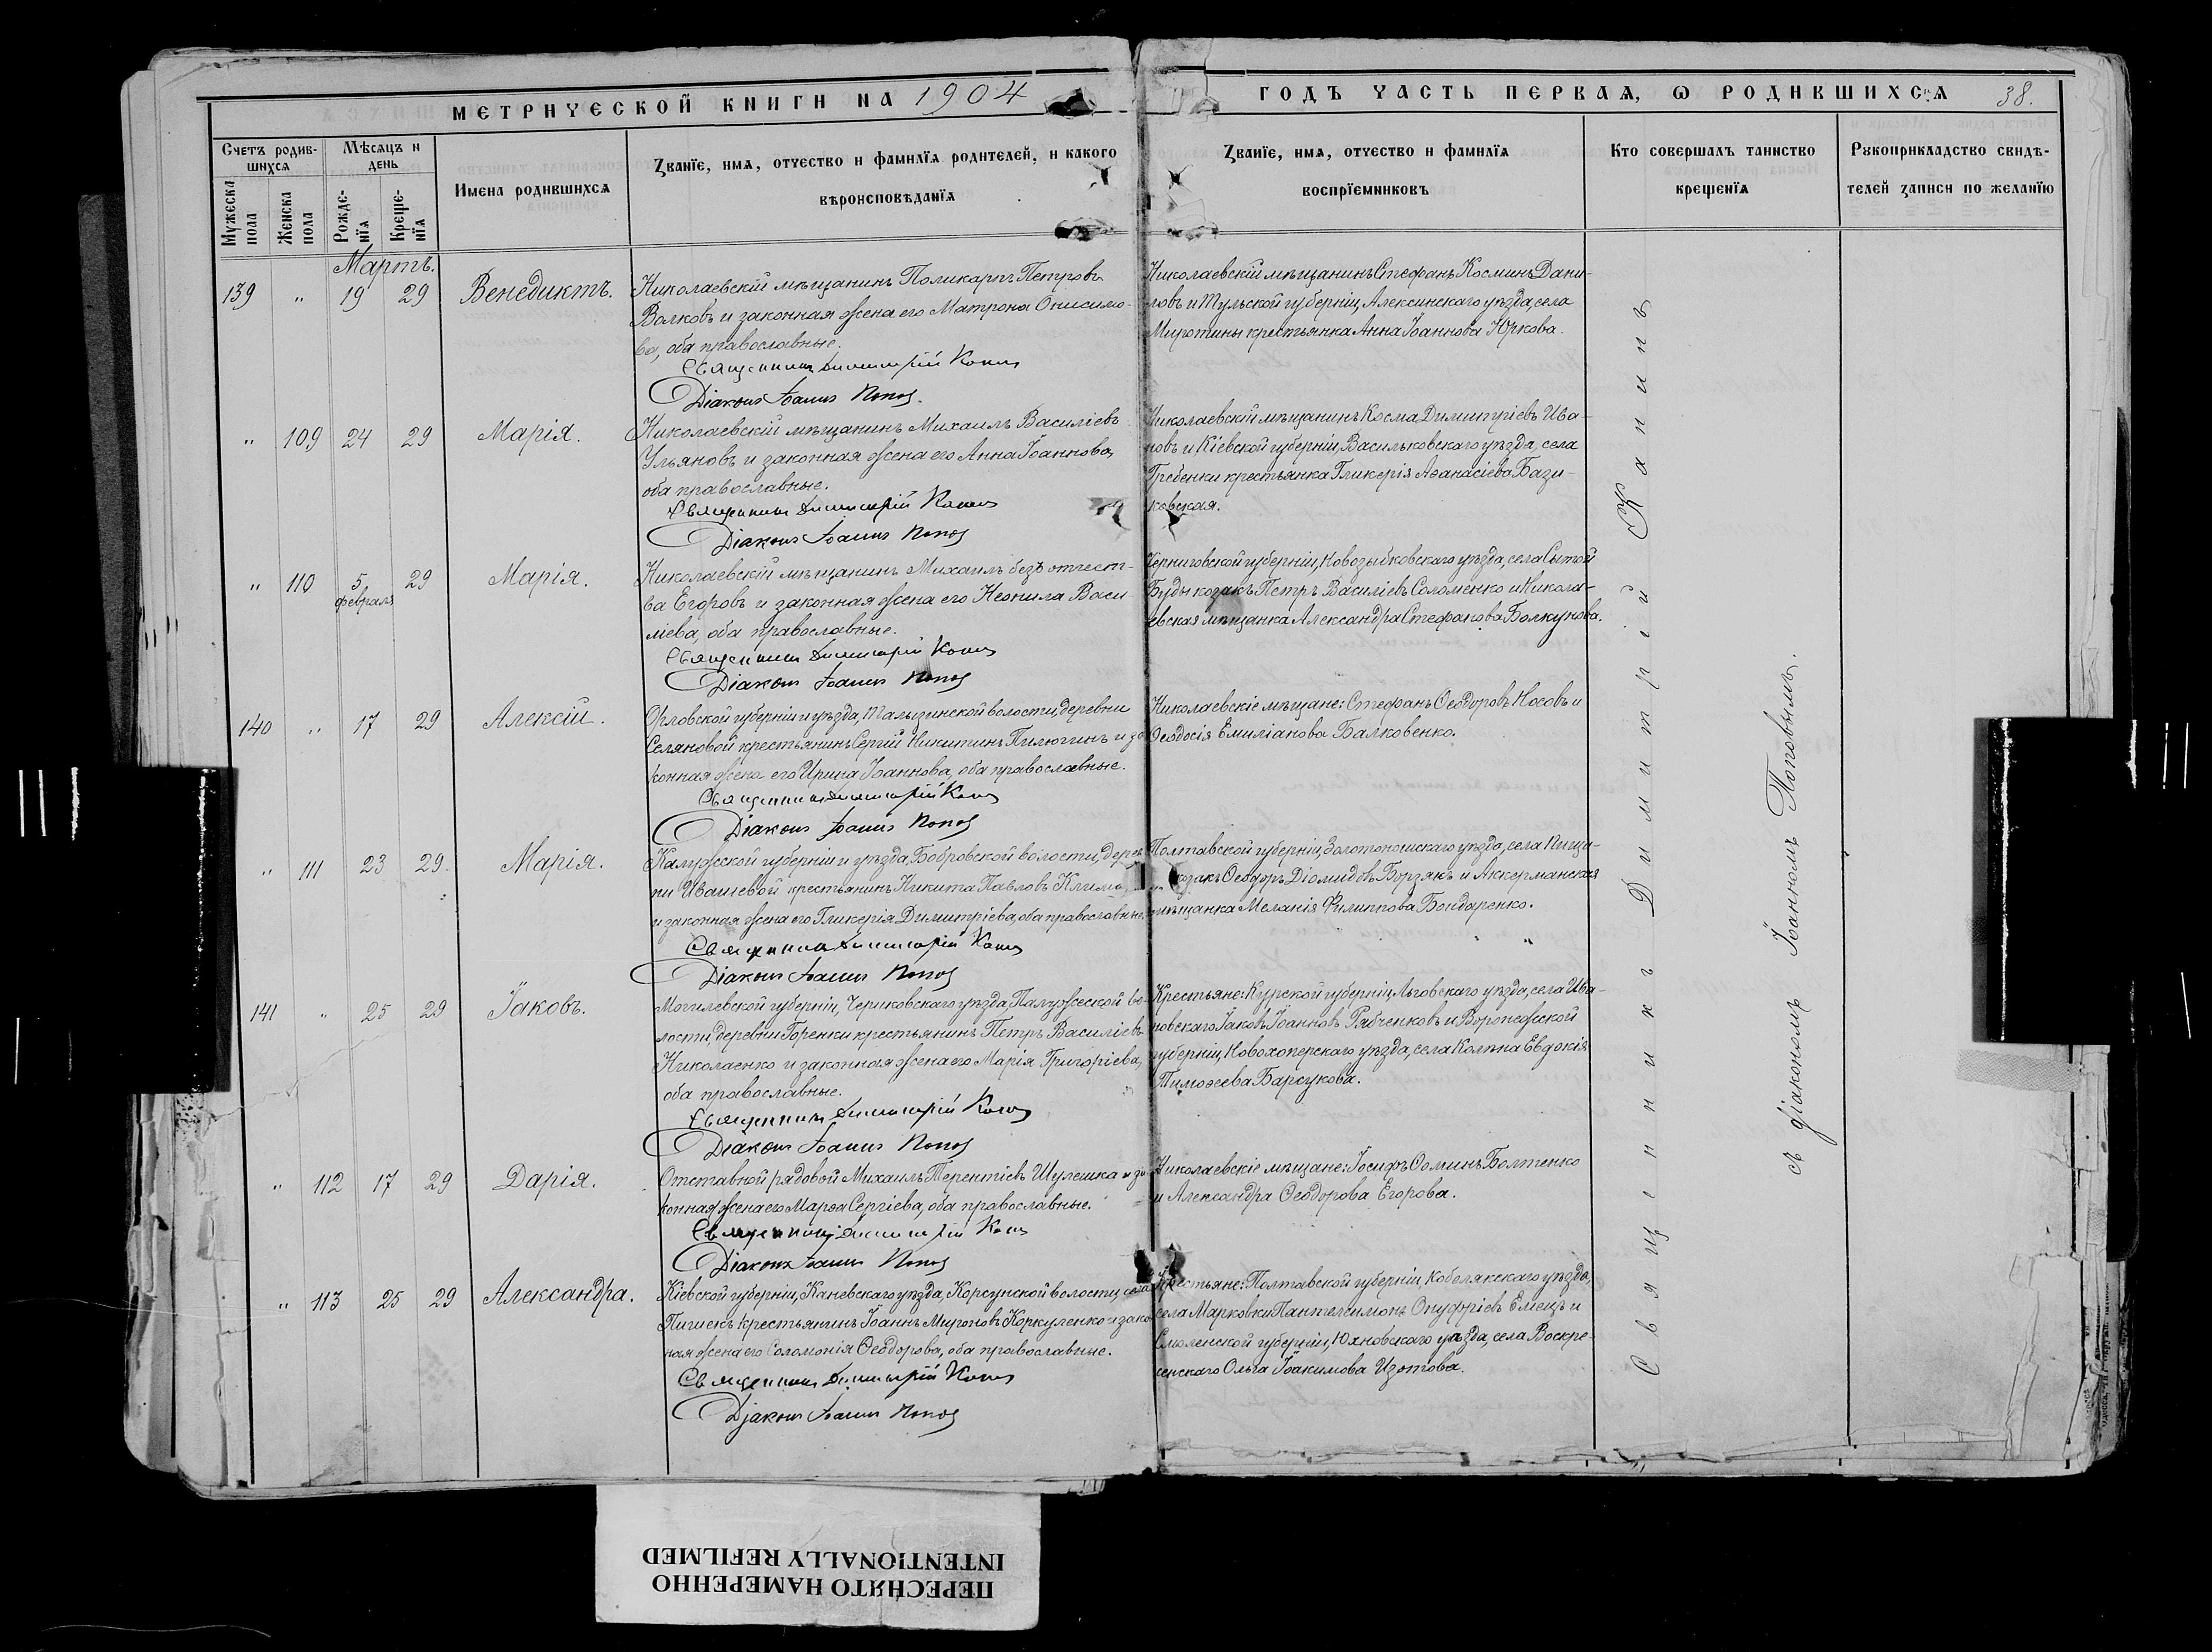 МЕТРИЧЕСКОЙ КНИГИ НА 1904
ГОДЪ ЧАСТЬ ПЕРВАЯ, Ѡ РОДИВШИХСЯ 38.
Счетъ родив-
шихся
Мѣсяцъ и
день
Мужеска
пола
Женска
пола
Рожде-
нїя
Креще-
нїя
Имена родившихся
Званїе, имя, отчество и фамилїя родителей, и какого
вѣроисповѣданїя
Званїе, имя, отчество и фамилїя
воспрїемниковъ
Кто совершалъ таинство
крещенїя
Рукоприкладство свидѣ-
телей записи по желанїю
Мартъ.
139 " 19 29 Венедиктъ.
Николаевскій мѣщанинъ Поликарпъ Петровъ
Волковъ и законная жена его Матрона Онисимо-
ва, оба православные.
Священникъ Димитрій Капинъ
Діаконъ Іоаннъ Поповъ
Николаевскій мѣщанинъ Стефанъ Косминъ Дани-
ловъ и Тульской губерніи, Алексинскаго уѣзда, села
Миротины крестьянка Анна Іоаннова Юркова.
" 109 24 29 Марія.
Николаевскій мѣщанинъ Михаилъ Василіевъ
Ульяновъ и законная жена его Анна Іоаннова,
оба православные.
Священникъ Димитрій Капинъ
Діаконъ Іоаннъ Поповъ
Николаевскій мѣщанинъ Косма Димитріевъ Ива-
новъ и Кіевской губерніи, Васильковскаго уѣзда, села
Гребенки крестьянка Гликерія Аѳанасіева Бази-
ковская.
" 110 5 29 Марія.
февраля
Николаевскій мѣщанинъ Михаилъ безъ отчест-
ва Егоровъ и законная жена его Неонила Васи
ліева, оба православные.
Священникъ Димитрій Капинъ
Діаконъ Іоаннъ Поповъ
Черниговской губерніи, Новозыбковскаго уѣзда, села Сытой
Буды козакъ Петръ Василіевъ Соломенко и Никола-
евская мѣщанка Александра Стефанова Болкунова.
140 " 17 29 Алексій.
Орловской губерніи и уѣзда, Талызинской волости, деревни
Селяновой крестьянинъ Сергій Никитинъ Пилюгинъ и за
конная жена его Ирина Іоаннова, оба православные.
Священникъ Димитрій Капинъ
Діаконъ Іоаннъ Поповъ
Николаевскіе мѣщане: Стефанъ Ѳеодоровъ Носовъ и
Ѳеодосія Емиліанова Балковенко.
" 111 23 29. Марія.
Калужской губерніи и уѣзда, Бобровской волости, дерев
ни Ивашевой крестьянинъ Никита Павловъ
и законная жена его Гликерія Димитріева, оба православные.
Священникъ Димитрій Капинъ
Діаконъ Іоаннъ Поповъ
Полтавской губерніи, Золотоношскаго уѣзда, села Пищи-
козакъ Ѳеодоръ Діомидовъ Борзякъ и Аккерманская
мѣщанка Меланія Филиппова Бондаренко.
141 " 25 29 Іаковъ.
Могилевской губерніи, Чериковскаго уѣзда, Палужеской во-
лости, деревни Горенки крестьянинъ Петръ Василіевъ
Николаенко и законная жена его Марія Григоріева,
оба православные.
Священникъ Димитрій Капинъ
Діаконъ Іоаннъ Поповъ
Крестьяне: Курской губерніи, Льговскаго уѣзда, села Ива-
новскаго Іаковъ Іоанновъ Рябченковъ и Воронежской
губерніи, Новохоперскаго уѣзда, села Колѣна Евдокія
Тимоѳеева Барсукова.
" 112 17 29 Дарія.
Отставной рядовой Михаилъ Терентіевъ Шулешка и за-
конная жена его Марѳа Сергіева, оба православные.
Священникъ Димитрій Капинъ
Діаконъ Іоаннъ Поповъ
Николаевскіе мѣщане: Іосифъ Ѳоминъ Болтенко
и Александра Ѳеодорова Егорова.
" 113 25 29 Александра.
Кіевской губерніи, Каневскаго уѣзда, Корсунской волости, села
Пишекъ крестьянинъ Іоаннъ Мироновъ Коркуленко и закон
ная жена его Соломонія Ѳеодорова, оба православные.
Священникъ Димитрій Капинъ
Діаконъ Іоаннъ Поповъ
Крестьяне: Полтавской губерніи, Кобелякскаго уѣзда,
села Марковки Пантелеимонъ Онуфріевъ Емецъ и
Смоленской губерніи, Юхновскаго уѣзда, села Воскре-
сенскаго Ольга Іоакимова Изотова.
Священникъ Димитрій Капинъ
съ діакономъ Іоанномъ Поповымъ.
ПЕРЕСНЯТО НАМЕРЕННО
INTENTIONALLY REFILMED